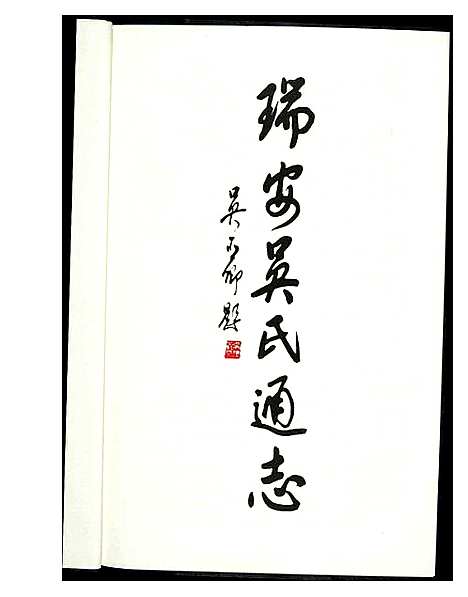 瑞安吴氏通志
吴
题